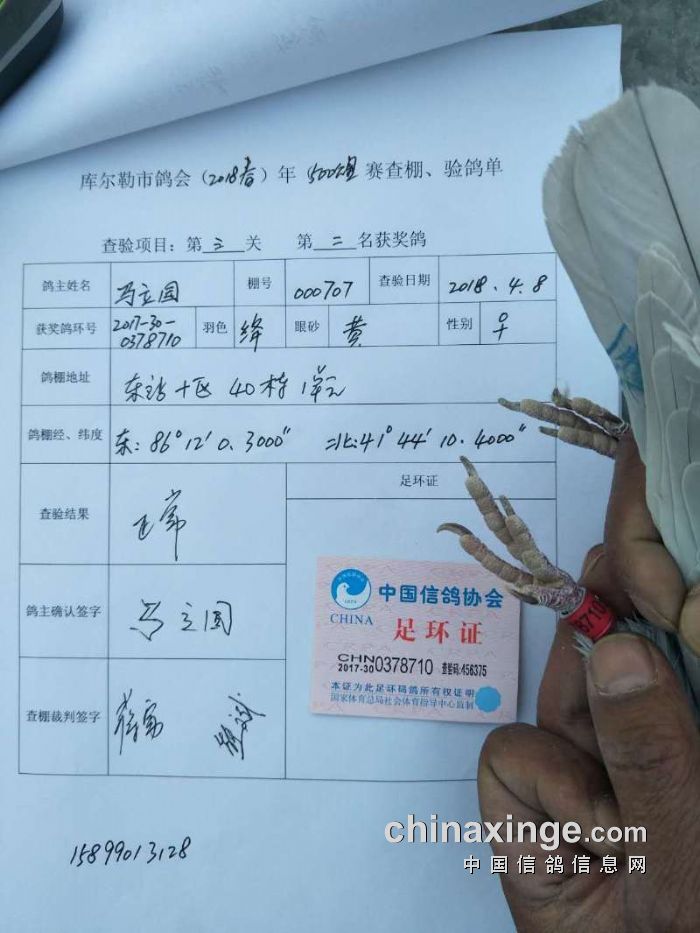 库尔勒市鸽会（2018春）年 500公里 赛查棚、验鸽单
查验项目：第 三 关 第 二 名获奖鸽
鸽主姓名 马立国 棚号 000707 查验日期 2018.4.8
获奖鸽环号 2017-30-0378710 羽色 绛 眼砂 黄 性别 ♀
鸽棚地址 东站十区 40栋 1单元
鸽棚经、纬度 东：86°12′0.3000″ 北：41°44′10.4000″
查验结果 正常
足环证
鸽主确认签字 马立国
查棚裁判签字
中国信鸽协会
CHINA
足环证
CHN
2017-30 0378710 查验码:456375
本证为此足环码鸽所有权证明
国家体育总局社会体育指导中心监制
8710
15899013128
chinaxinge.com
中国信鸽信息网